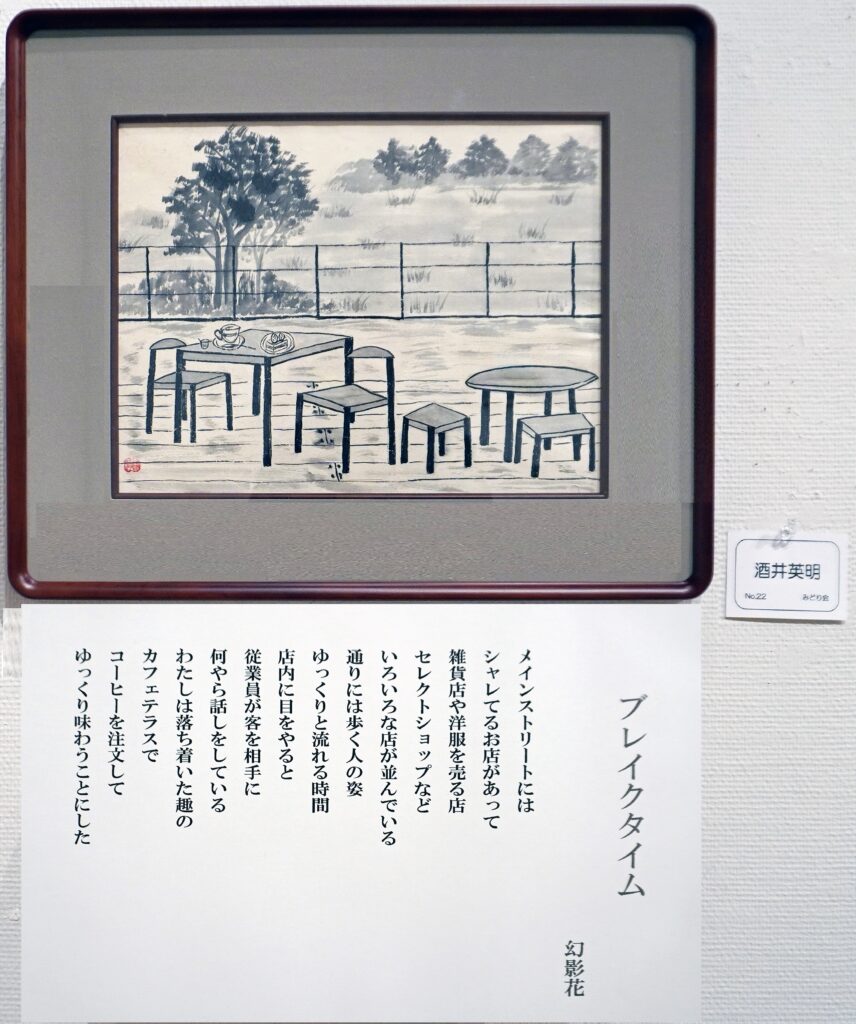 ブレイクタイム
幻影花
メインストリートには
シャレてるお店があって
雑貨店や洋服を売る店
セレクトショップなど
いろいろな店が並んでいる
通りには歩く人の姿
ゆっくりと流れる時間
店内に目をやると
従業員が客を相手に
何やら話しをしている
わたしは落ち着いた趣の
カフェテラスで
コーヒーを注文して
ゆっくり味わうことにした
酒井英明
No.22 みどり会